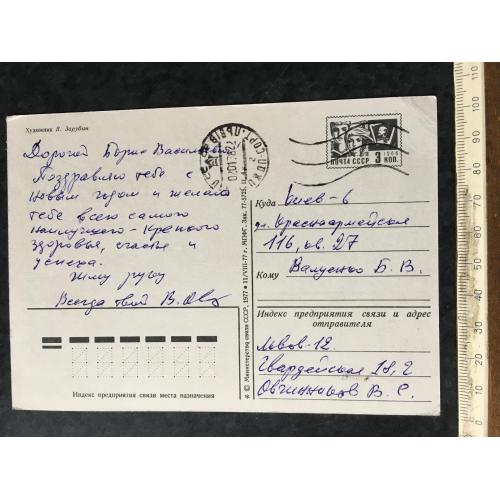 Художник В. Зарубин
Дорогой Борис Васильевич
Поздравляю тебя с
Новым годом и желаю
тебе всего самого
наилучшего - крепкого
здоровья, счастья и
успеха.
Жму руку
Всегда твой В. Овч
ПОЧТА СССР 3 КОП.
1966
Куда Киев-6
ул. Красноармейская
116, кв. 27
Кому Валуенко Б. В.
Индекс предприятия связи и адрес
отправителя
Львов-12
Гвардейская 18, 2
Овчинников В. С.
Индекс предприятия связи места назначения
© Министерство связи СССР, 1977 * 11/VIII-77 г. МПФГ. Зак. 77-5725.